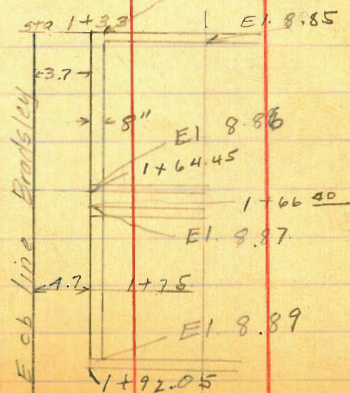 sta 1+33
El. 8.85
3.7
8"
El 8.86
1+64.45
1+66 40
El. 8.87
4.7
1+75
El. 8.89
1+92.05
E cb line Bradsley